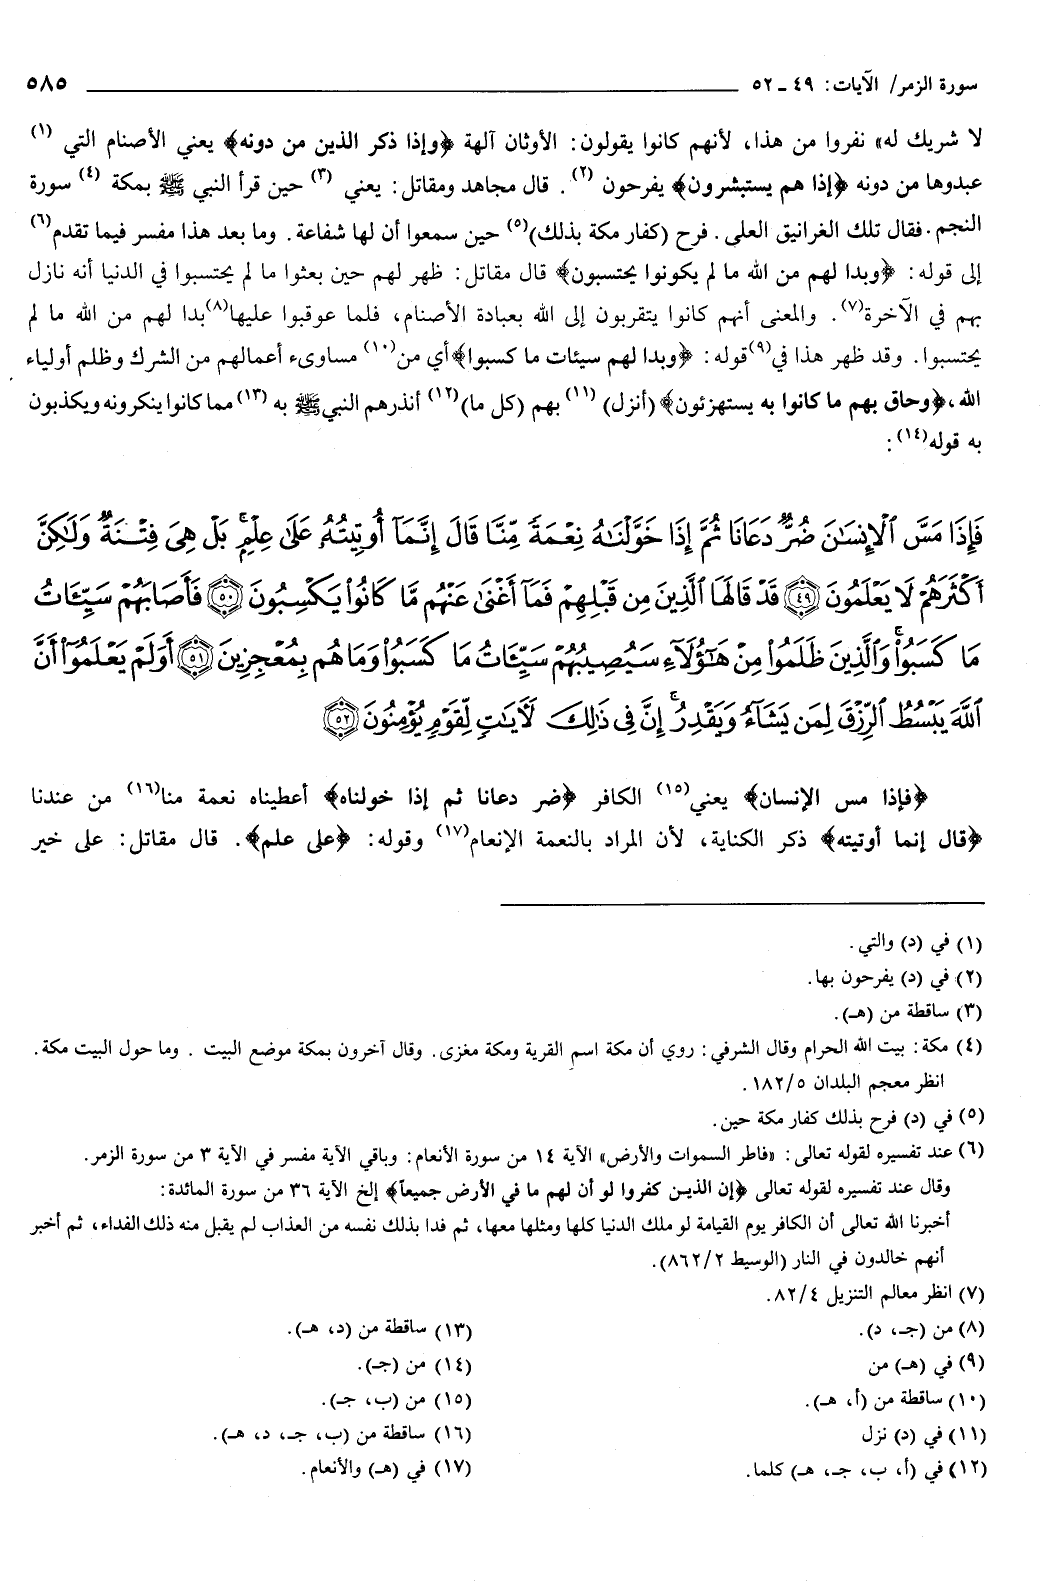 سورة الزمر/ الآيات: ٤٩ ـ ٥٢ ٥٨٥
لا شريك له» نفروا من هذا، لأنهم كانوا يقولون: الأوثان آلهة ﴿وإذا ذكر الذين من دونه﴾ يعني الأصنام التي (١)
عبدوها من دونه ﴿إذا هم يستبشرون﴾ يفرحون (٢). قال مجاهد ومقاتل: يعني (٣) حين قرأ النبي ﷺ بمكة (٤) سورة
النجم. فقال تلك الغرانيق العلى. فرح (كفار مكة بذلك)(٥) حين سمعوا أن لها شفاعة. وما بعد هذا مفسر فيما تقدم(٦)
إلى قوله: ﴿وبدا لهم من الله ما لم يكونوا يحتسبون﴾ قال مقاتل: ظهر لهم حين بعثوا ما لم يحتسبوا في الدنيا أنه نازل
بهم في الآخرة(٧). والمعنى أنهم كانوا يتقربون إلى الله بعبادة الأصنام، فلما عوقبوا عليها(٨)بدا لهم من الله ما لم
يحتسبوا. وقد ظهر هذا في(٩)قوله: ﴿وبدا لهم سيئات ما كسبوا﴾أي من(١٠) مساوىء أعمالهم من الشرك وظلم أولياء
الله،﴿وحاق بهم ما كانوا به يستهزئون﴾ (أنزل) (١١) بهم (كل ما)(١٢) أنذرهم النبيﷺ به (١٣) مما كانوا ينكرونه ويكذبون
به قوله(١٤):
فَإِذَا مَسَّ ٱلْإِنسَٰنَ ضُرٌّ دَعَانَا ثُمَّ إِذَا خَوَّلْنَٰهُ نِعْمَةً مِّنَّا قَالَ إِنَّمَآ أُوتِيتُهُۥ عَلَىٰ عِلْمٍۭ ۚ بَلْ هِىَ فِتْنَةٌ وَلَٰكِنَّ
أَكْثَرَهُمْ لَا يَعْلَمُونَ ۝٤٩ قَدْ قَالَهَا ٱلَّذِينَ مِن قَبْلِهِمْ فَمَآ أَغْنَىٰ عَنْهُم مَّا كَانُوا۟ يَكْسِبُونَ ۝٥٠ فَأَصَابَهُمْ سَيِّـَٔاتُ
مَا كَسَبُوا۟ ۚ وَٱلَّذِينَ ظَلَمُوا۟ مِنْ هَٰٓؤُلَآءِ سَيُصِيبُهُمْ سَيِّـَٔاتُ مَا كَسَبُوا۟ وَمَا هُم بِمُعْجِزِينَ ۝٥١ أَوَلَمْ يَعْلَمُوٓا۟ أَنَّ
ٱللَّهَ يَبْسُطُ ٱلرِّزْقَ لِمَن يَشَآءُ وَيَقْدِرُ ۚ إِنَّ فِى ذَٰلِكَ لَءَايَٰتٍ لِّقَوْمٍ يُؤْمِنُونَ ۝٥٢
﴿فإذا مس الإنسان﴾ يعني(١٥) الكافر ﴿ضر دعانا ثم إذا خولناه﴾ أعطيناه نعمة منا(١٦) من عندنا
﴿قال إنما أوتيته﴾ ذكر الكناية، لأن المراد بالنعمة الإنعام(١٧) وقوله: ﴿على علم﴾. قال مقاتل: على خير
(١) في (د) والتي.
(٢) في (د) يفرحون بها.
(٣) ساقطة من (هـ).
(٤) مكة: بيت الله الحرام وقال الشرفي: روي أن مكة اسم القرية ومكة مغزى. وقال آخرون بمكة موضع البيت . وما حول البيت مكة.
انظر معجم البلدان ١٨٢/٥.
(٥) في (د) فرح بذلك كفار مكة حين.
(٦) عند تفسيره لقوله تعالى: «فاطر السموات والأرض» الآية ١٤ من سورة الأنعام: وباقي الآية مفسر في الآية ٣ من سورة الزمر.
وقال عند تفسيره لقوله تعالى ﴿إن الذين كفروا لو أن لهم ما في الأرض جميعاً﴾ إلخ الآية ٣٦ من سورة المائدة:
أخبرنا الله تعالى أن الكافر يوم القيامة لو ملك الدنيا كلها ومثلها معها، ثم فدا بذلك نفسه من العذاب لم يقبل منه ذلك الفداء، ثم أخبر
أنهم خالدون في النار (الوسيط ٨٦٢/٢).
(٧) انظر معالم التنزيل ٨٢/٤.
(٨) من (جـ، د).
(٩) في (هـ) من
(١٠) ساقطة من (أ، هـ).
(١١) في (د) نزل
(١٢) في (أ، ب، جـ، هـ) كلما.
(١٣) ساقطة من (د، هـ).
(١٤) من (جـ).
(١٥) من (ب، جـ).
(١٦) ساقطة من (ب، جـ، د، هـ).
(١٧) في (هـ) والأنعام.